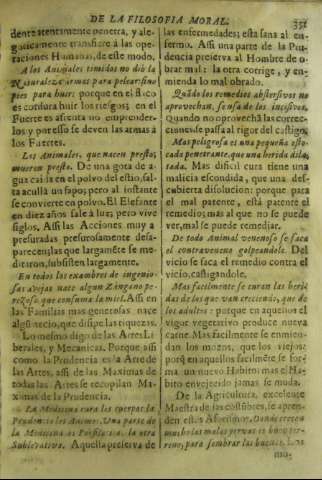 DE LA FILOSOFIA MORAL. 351
dente atentamente penetra, y ale-
goricamente transfiere à las ope-
raciones Humanas, de este modo.
A los Animales timidos no diò la
Naturaleza armas para pelear sino
pies para huir: porque en el flaco
es cordura huir los riesgos; en el
Fuerte es afrenta no emprender-
los y por esso se deven las armas à
los Fuertes.
Los Animales, que nacen presto,
mueren presto. De una gota de a-
gua caìda en el polvo de estio, sal-
ta acullà un sapo; pero al instante
se convierte en polvo. El Elefante
en diez años sale à luz; pero vive
siglos. Assi las Acciones muy a-
presuradas presurosamente desa-
parecen; las que largamente se me-
dìtaron, subsisten largamente.
En todos los examбres de ingenio-
sas Avejas nace algun Zangano pe-
rezoso, que consuma la miel. Assi en
las Familias mas generosas nace
algū necio, que disipe las riquezas.
Lo mesmo digo de las Artes Li-
berales, y Mecanicas. Porque assi
como la Prudencia es la Arte de
las Artes, assi de las Maximas de
todas las Artes se recopilan Ma-
ximas de la Prudencia.
La Medicina cura los cuerpos: la
Prudencia los Animos. Una parte de
la Medicina es la
Aquella preserva de
las enfermedades; esta sana al en-
fermo. Assi una parte de la Pru-
dencia preserva al Hombre de o-
brar mal: la otra corrige, y en-
mienda lo mal obrado.
Quādo los remedios abstersivos no
aprovechan, se usa de los incisivos.
Quando no aprovechà las correc-
ciones, se passa al rigor del castigo.
Mas peligrosa es una pequeña esto-
cada penetrante, que una herida dila-
tada. Mas dificil cura tiene una
malicia escondida, que una des-
cubierta disolucion: porque para
el mal patente, està patente el
remedio; mas al que no se puede
ver, mal se puede remediar.
De todo Animal venenoso se saca
el contraveneno golpeandole. Del
vicio se saca el remedio contra el
vicio, castigandole.
Mas facilmente se curan las heri-
das de los que van creciendo, que de
los adultos: porque en aquellos el
vigor vegetativo produce nueva
carne. Mas facilmente se enmien-
dan los mozos, que los viejos:
porq̄ en aquellos facilmēte se for-
ma un nuevo Habito: mas el Ha-
bito envejecido jamas se muda.
De la Agricultura, excelente
Maestra de las costūbres, se apren-
den estos Aforismos. Donde crecen
muchas malas yervas es buen ter-
reno, para sembrar las buenas. Los